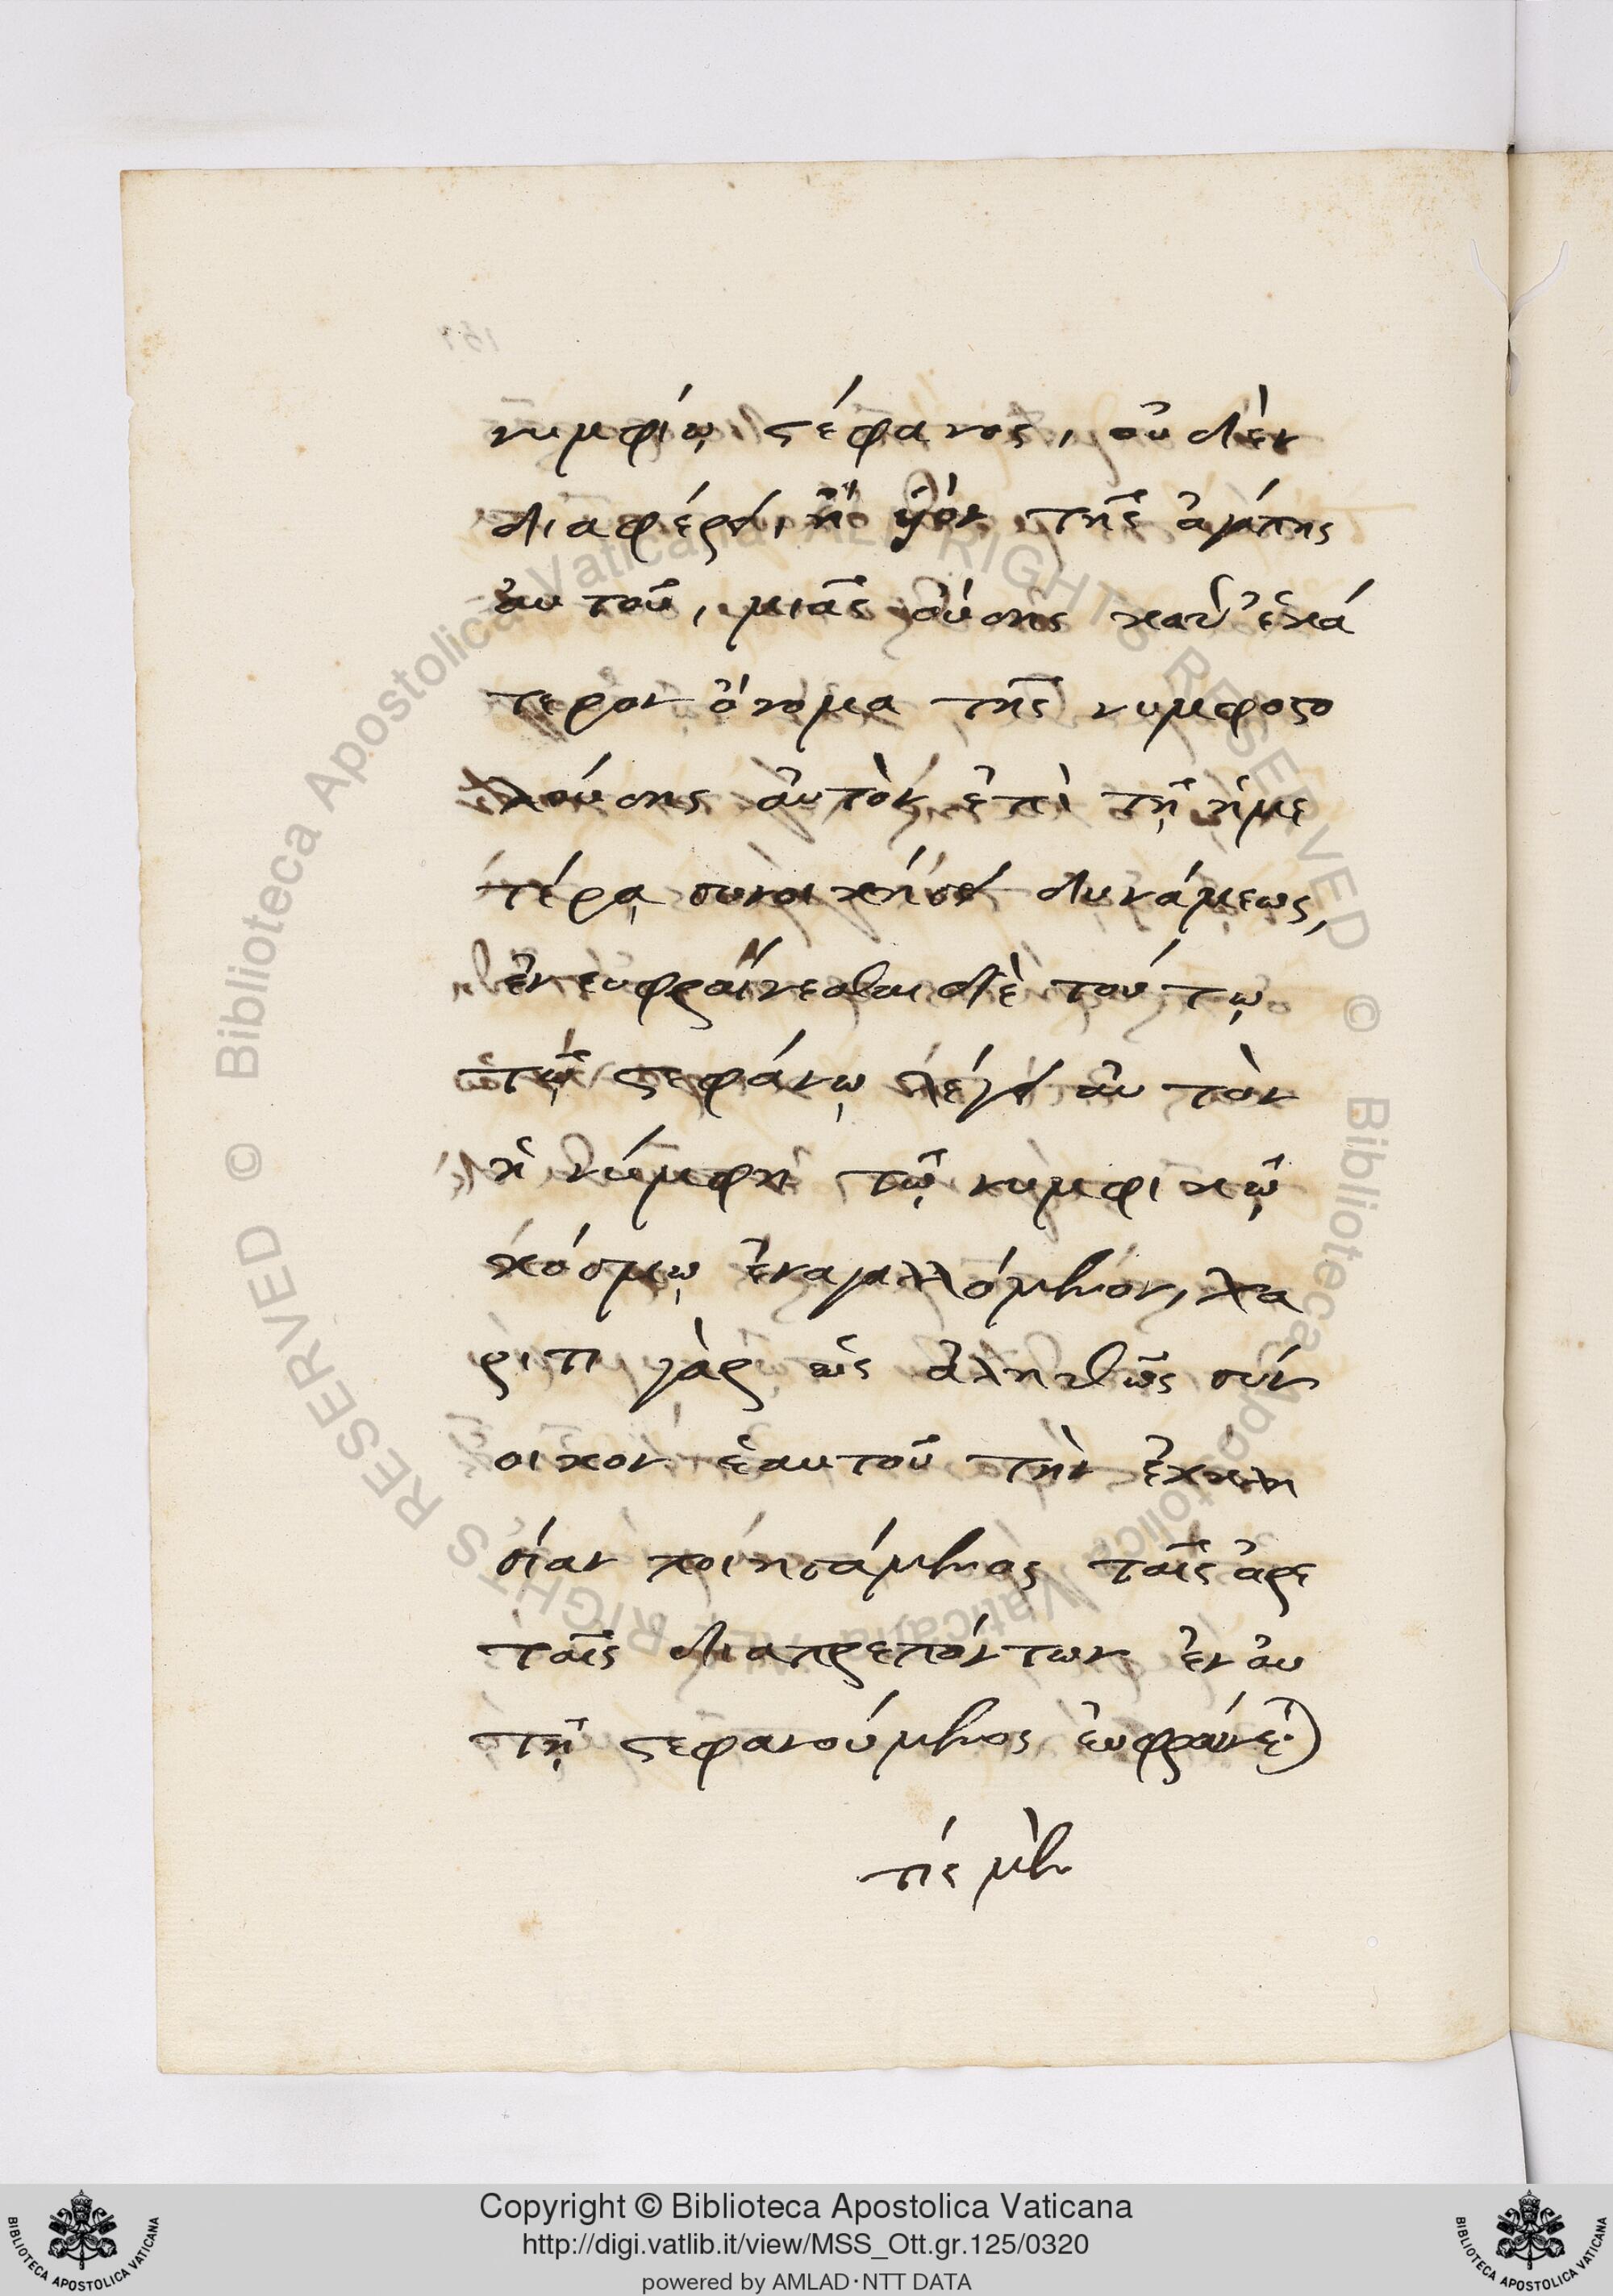 νυμφίῳ στέφανος, οὐδὲν
διαφέρει, ἢ υἱὸν τῆς ἀγάπης
αὐτοῦ, μιᾶς οὔσης καθ' ἑκά
τερον ὄνομα τῆς νυμφοστο
λούσης αὐτὸν ἐπὶ τῇ ἡμε
τέρᾳ συνοικήσει δυνάμεως,
ἐνευφραίνεσθαι δὲ τούτῳ
τῷ στεφάνῳ λέγει αὐτὸν
ἡ νύμφη τῷ νυμφικῷ
κόσμῳ ἐναγαλλόμενον, χα
ρίτι γὰρ ὡς ἀληθῶς σύν
οικον ἑαυτοῦ τὴν ἐκκλη
σίαν ποιησάμενος ταῖς ἀρε
ταῖς διαπρεπόντων ἐν αὐ
τῇ στεφανούμενος εὐφραίνεται
τίς μὲν
Copyright © Biblioteca Apostolica Vaticana
http://digi.vatlib.it/view/MSS_Ott.gr.125/0320
powered by AMLAD·NTT DATA
BIBLIOTECA APOSTOLICA VATICANA
BIBLIOTECA APOSTOLICA VATICANA
© Biblioteca Apostolica Vaticana ALL RIGHTS RESERVED
© Biblioteca Apostolica Vaticana ALL RIGHTS RESERVED